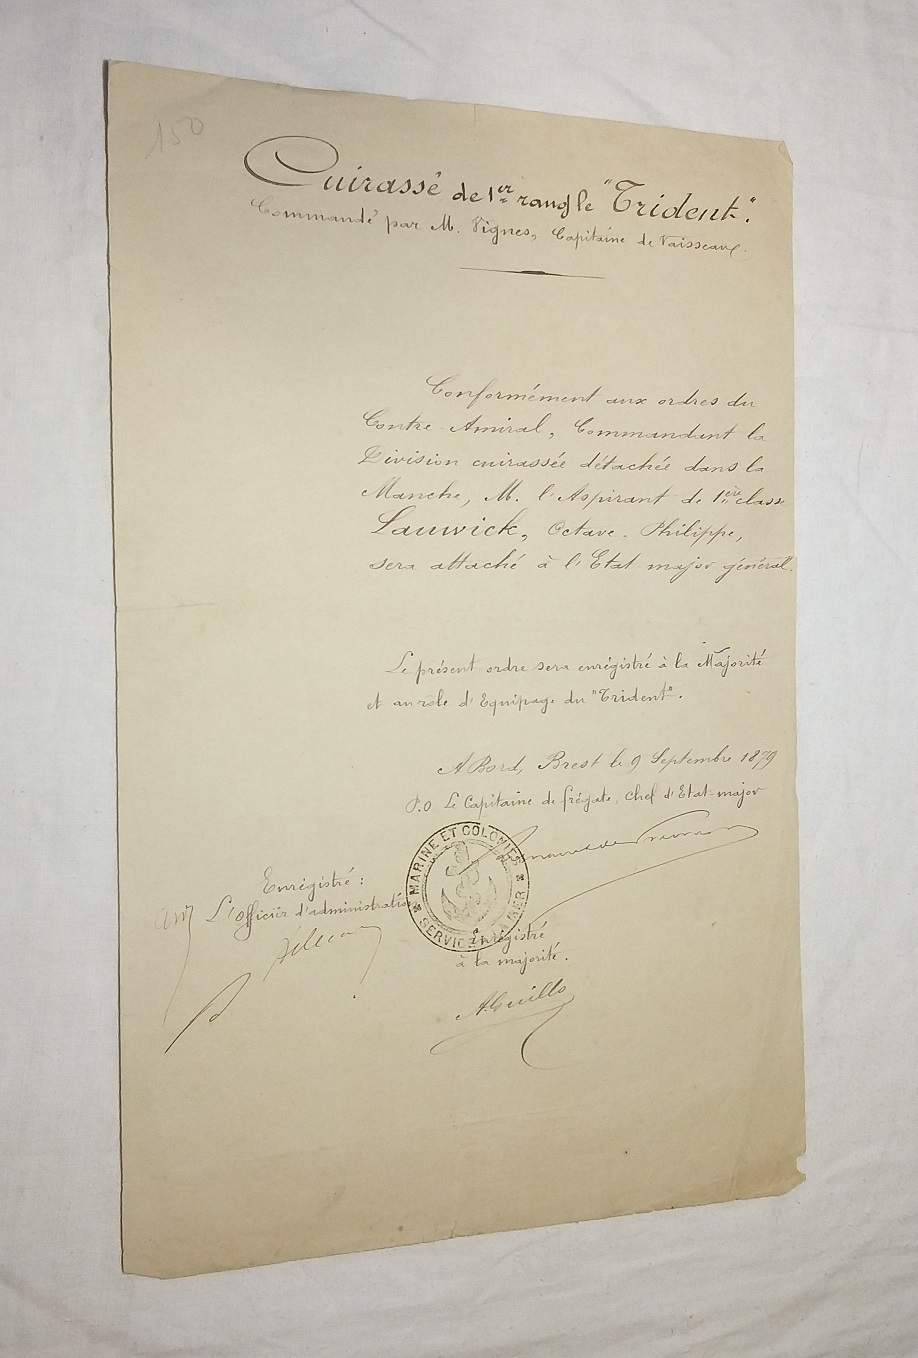 150
Cuirassé de 1er rang le "Trident".
Commandé par M. Vignes, Capitaine de Vaisseau.
Conformément aux ordres du
Contre Amiral, Commandant la
Division cuirassée détachée dans la
Manche, M. l'Aspirant de 1ère classe
Lauwick, Octave. Philippe,
sera attaché à l'Etat major général.
Le présent ordre sera enrégistré à la Majorité
et au rôle d'Equipage du "Trident".
A Bord, Brest le 9 Septembre 1879
P.O. Le Capitaine de frégate, chef d'Etat-major
MARINE ET COLONIES
SERVICE À LA MER
Enrégistré :
L'officier d'administration
Enrégistré
à la majorité.
A. Guillo